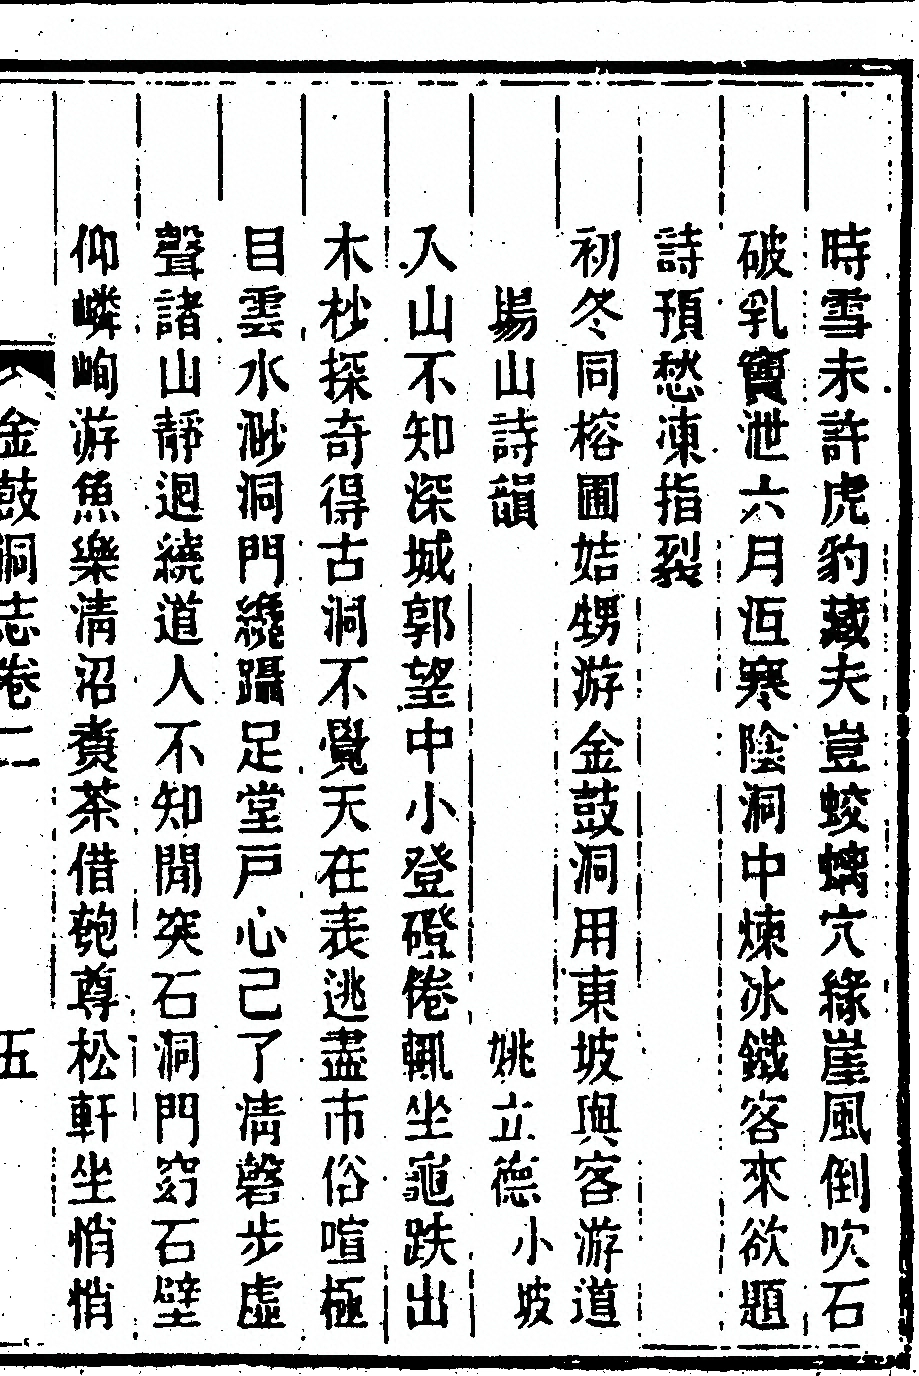 時雪未許虎豹藏夫豈蛟螭穴緣崖風倒吹石
破乳竇泄六月沍寒陰洞中煉冰鐵客來欲題
詩預愁凍指裂
初冬同榕圃姞甥游金鼓洞用東坡與客游道
場山詩韻 姚立德小坡
入山不知深城郭望中小登磴倦輒坐龜趺出
木杪探奇得古洞不覺天在表逃盡市俗喧極
目雲水渺洞門纔躡足堂戸心已了清磬步虛
聲諸山靜迴繞道人不知閒突石洞門窈石壁
仰嶙峋游魚樂清沼煑茶借匏尊松軒坐悄悄
金鼓洞志卷二 五